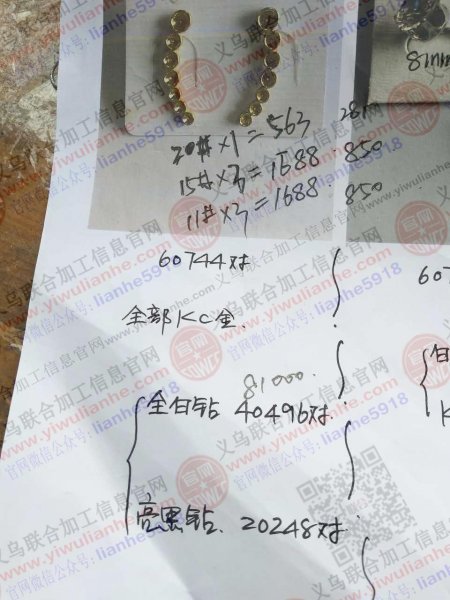 8mm
20# × 1 = 563
15# × 3 = 1688 850
11# × 3 = 1688 850
60744对
607
全部KC金.
81000.
全白钻 40496对.
亮黑钻. 20248对
义乌联合加工信息官网
www.yiwulianhe.com
官网微信公众号: lianhe5918
官网